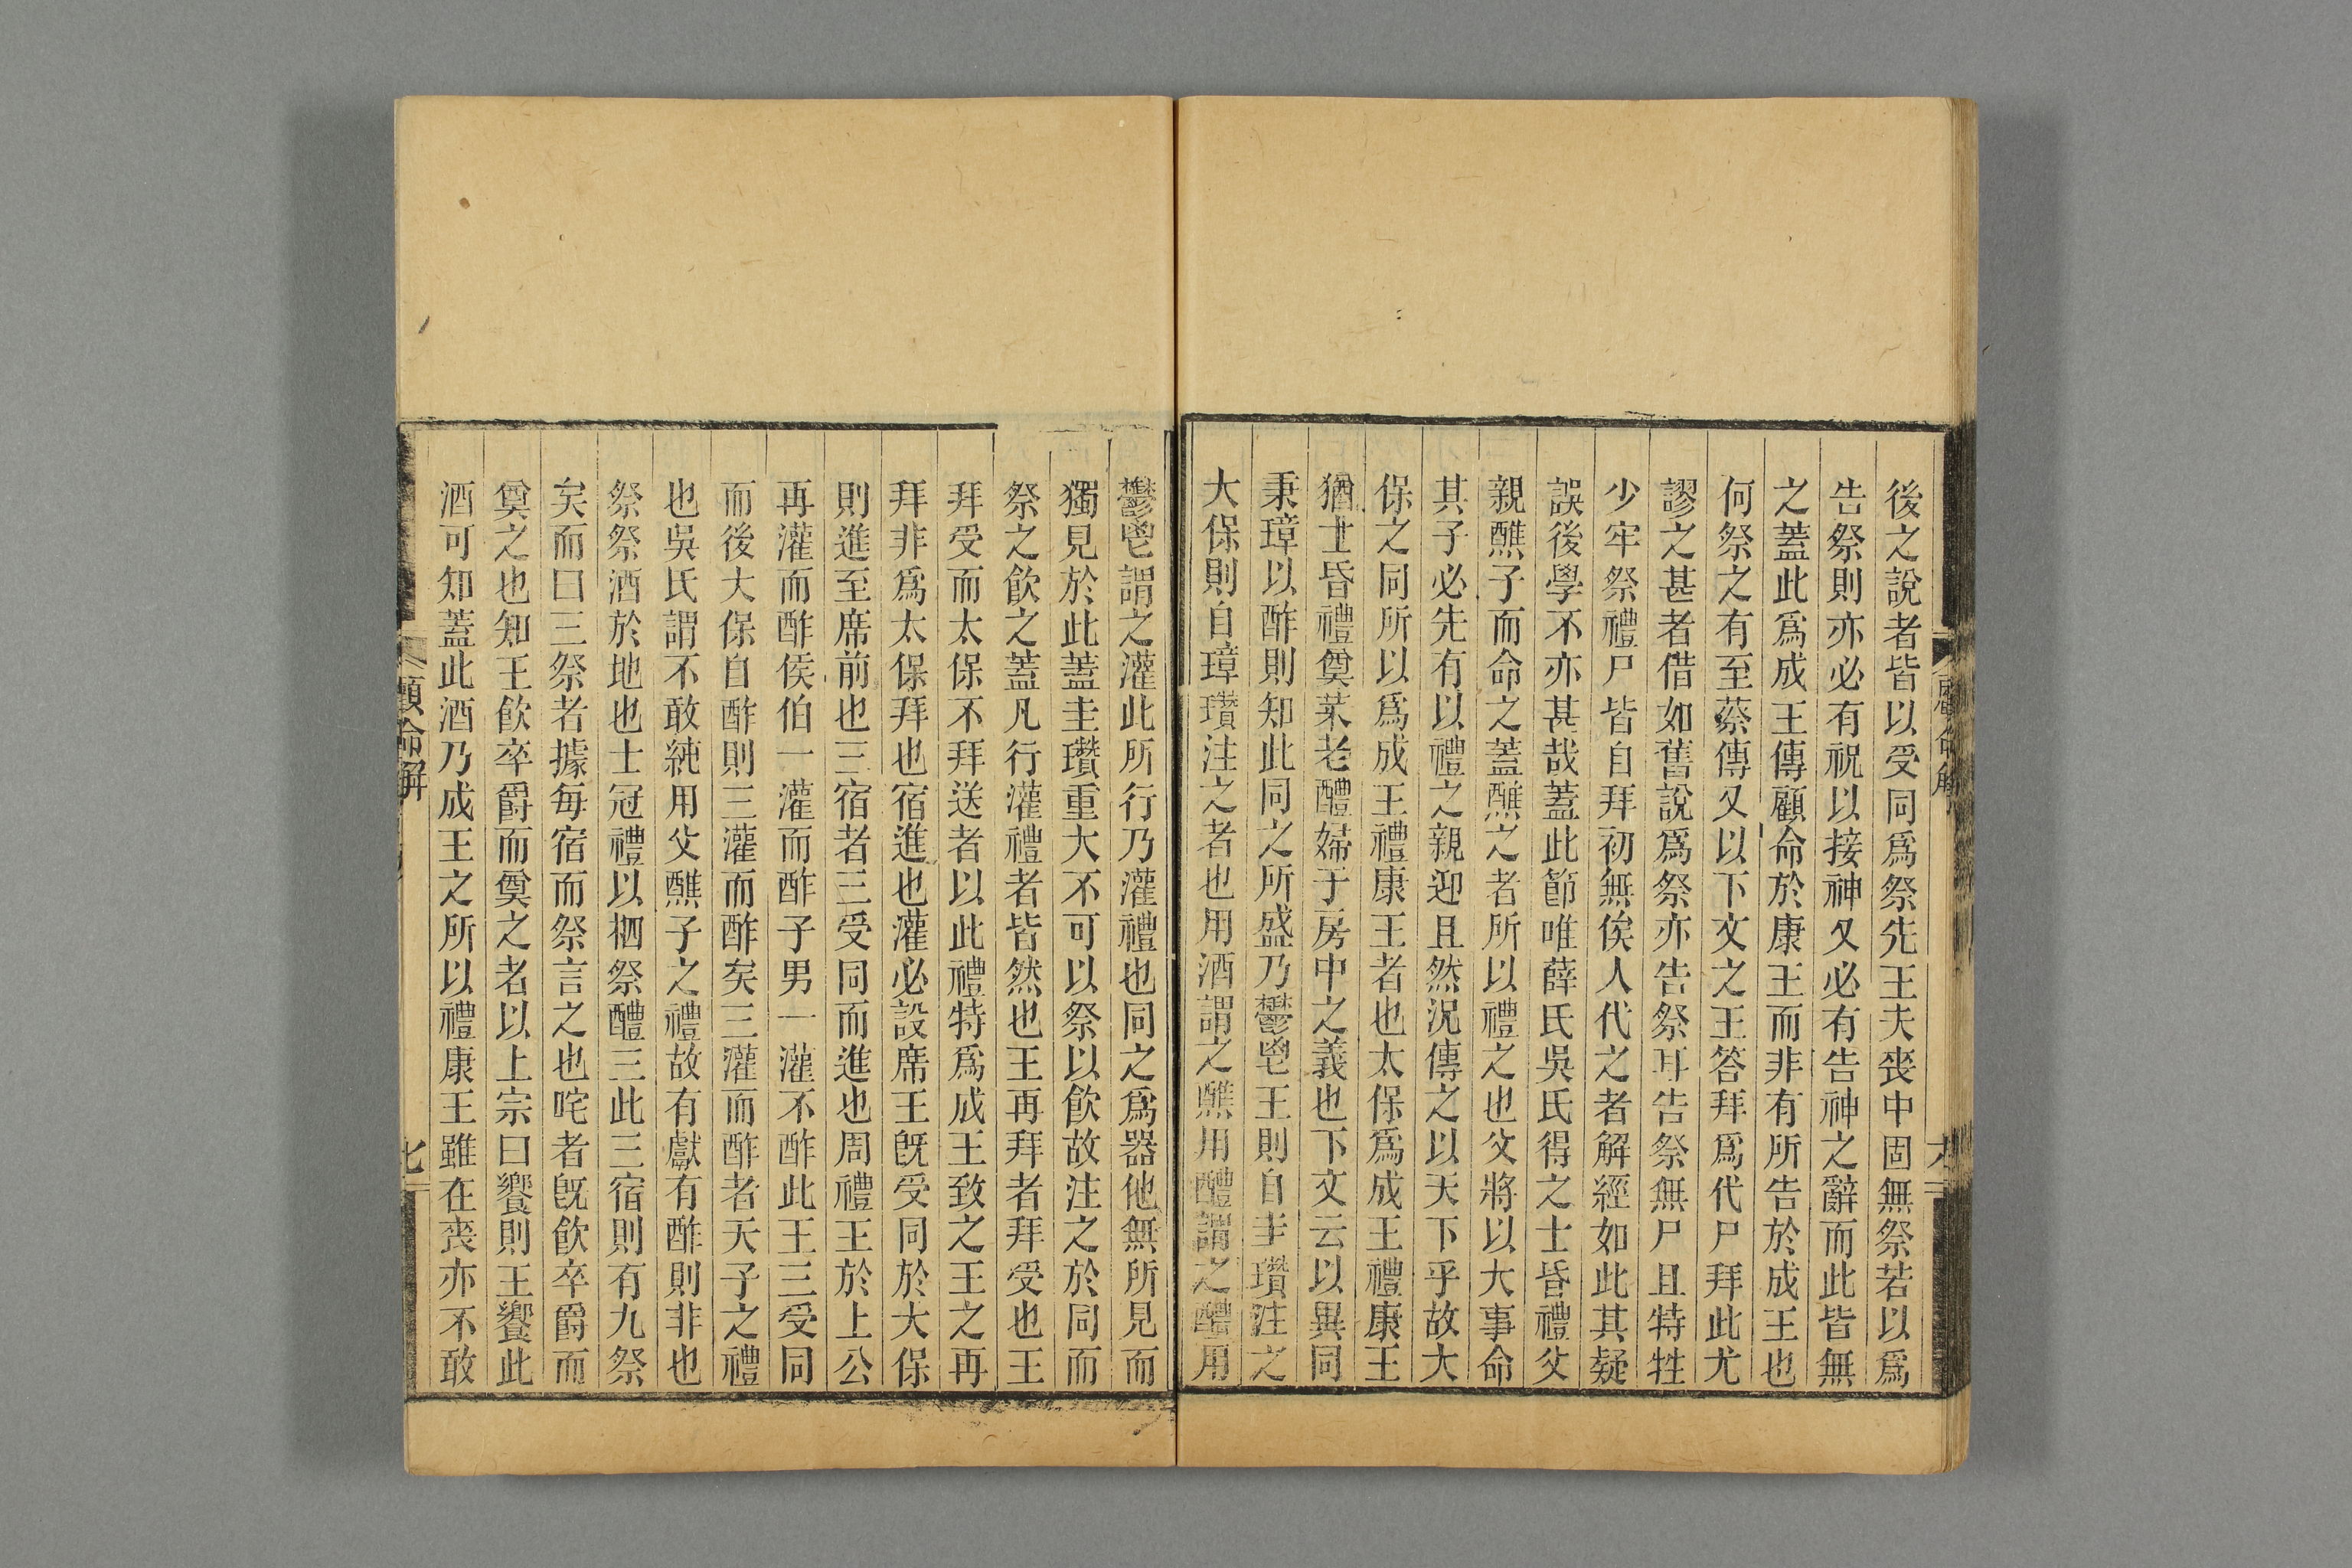 後之說者皆以受同爲祭先王夫喪中固無祭若以爲
告祭則亦必有祝以接神又必有告神之辭而此皆無
之蓋此爲成王傳顧命於康王而非有所告於成王也
何祭之有至蔡傳又以下文之王答拜爲代尸拜此尤
謬之甚者借如舊說爲祭亦告祭耳告祭無尸且特牲
少牢祭禮尸皆自拜初無俟人代之者解經如此其疑
誤後學不亦甚哉蓋此節唯薛氏吳氏得之士昏禮父
親醮子而命之蓋醮之者所以禮之也父將以大事命
其子必先有以禮之親迎且然況傳之以天下乎故大
保之同所以爲成王禮康王者也太保爲成王禮康王
猶士昏禮奠菜老醴婦于房中之義也下文云以異同
秉璋以酢則知此同之所盛乃鬱鬯王則自圭瓚注之
大保則自璋瓚注之者也用酒謂之醮用醴謂之醴用
鬱鬯謂之灌此所行乃灌禮也同之爲器他無所見而
獨見於此蓋圭瓚重大不可以祭以飲故注之於同而
祭之飲之蓋凡行灌禮者皆然也王再拜者拜受也王
拜受而太保不拜送者以此禮特爲成王致之王之再
拜非爲太保拜也宿進也灌必設席王旣受同於大保
則進至席前也三宿者三受同而進也周禮王於上公
再灌而酢侯伯一灌而酢子男一灌不酢此王三受同
而後大保自酢則三灌而酢矣三灌而酢者天子之禮
也吳氏謂不敢純用父醮子之禮故有獻有酢則非也
祭祭酒於地也士冠禮以柶祭醴三此三宿則有九祭
矣而曰三祭者據每宿而祭言之也咤者旣飲卒爵而
奠之也知王飲卒爵而奠之者以上宗曰饗則王饗此
酒可知蓋此酒乃成王之所以禮康王雖在喪亦不敢
顧命解
七